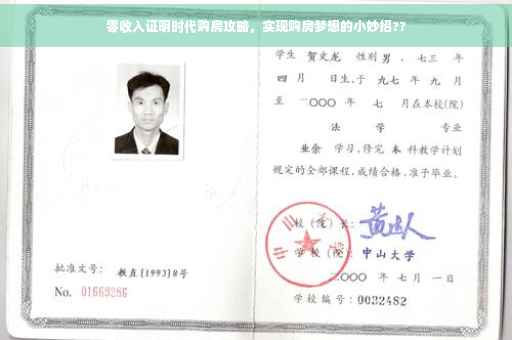 零收入证明时代购房攻略，实现购房梦想的小妙招??
学生 贺文龙 性别 男，七三 年
四 月 日生，于 九七 年 九 月
至 二〇〇〇 年 七 月在本校(院)
法 学 专业
业余 学习，修完 本 科教学计划
规定的全部课程，成绩合格，准予毕业。
校（院）长：
学 校（院）：中山大学
二〇〇〇 年 七 月 一 日
学校编号：0032482
批准文号：教直[1993]8号
No. 01663286